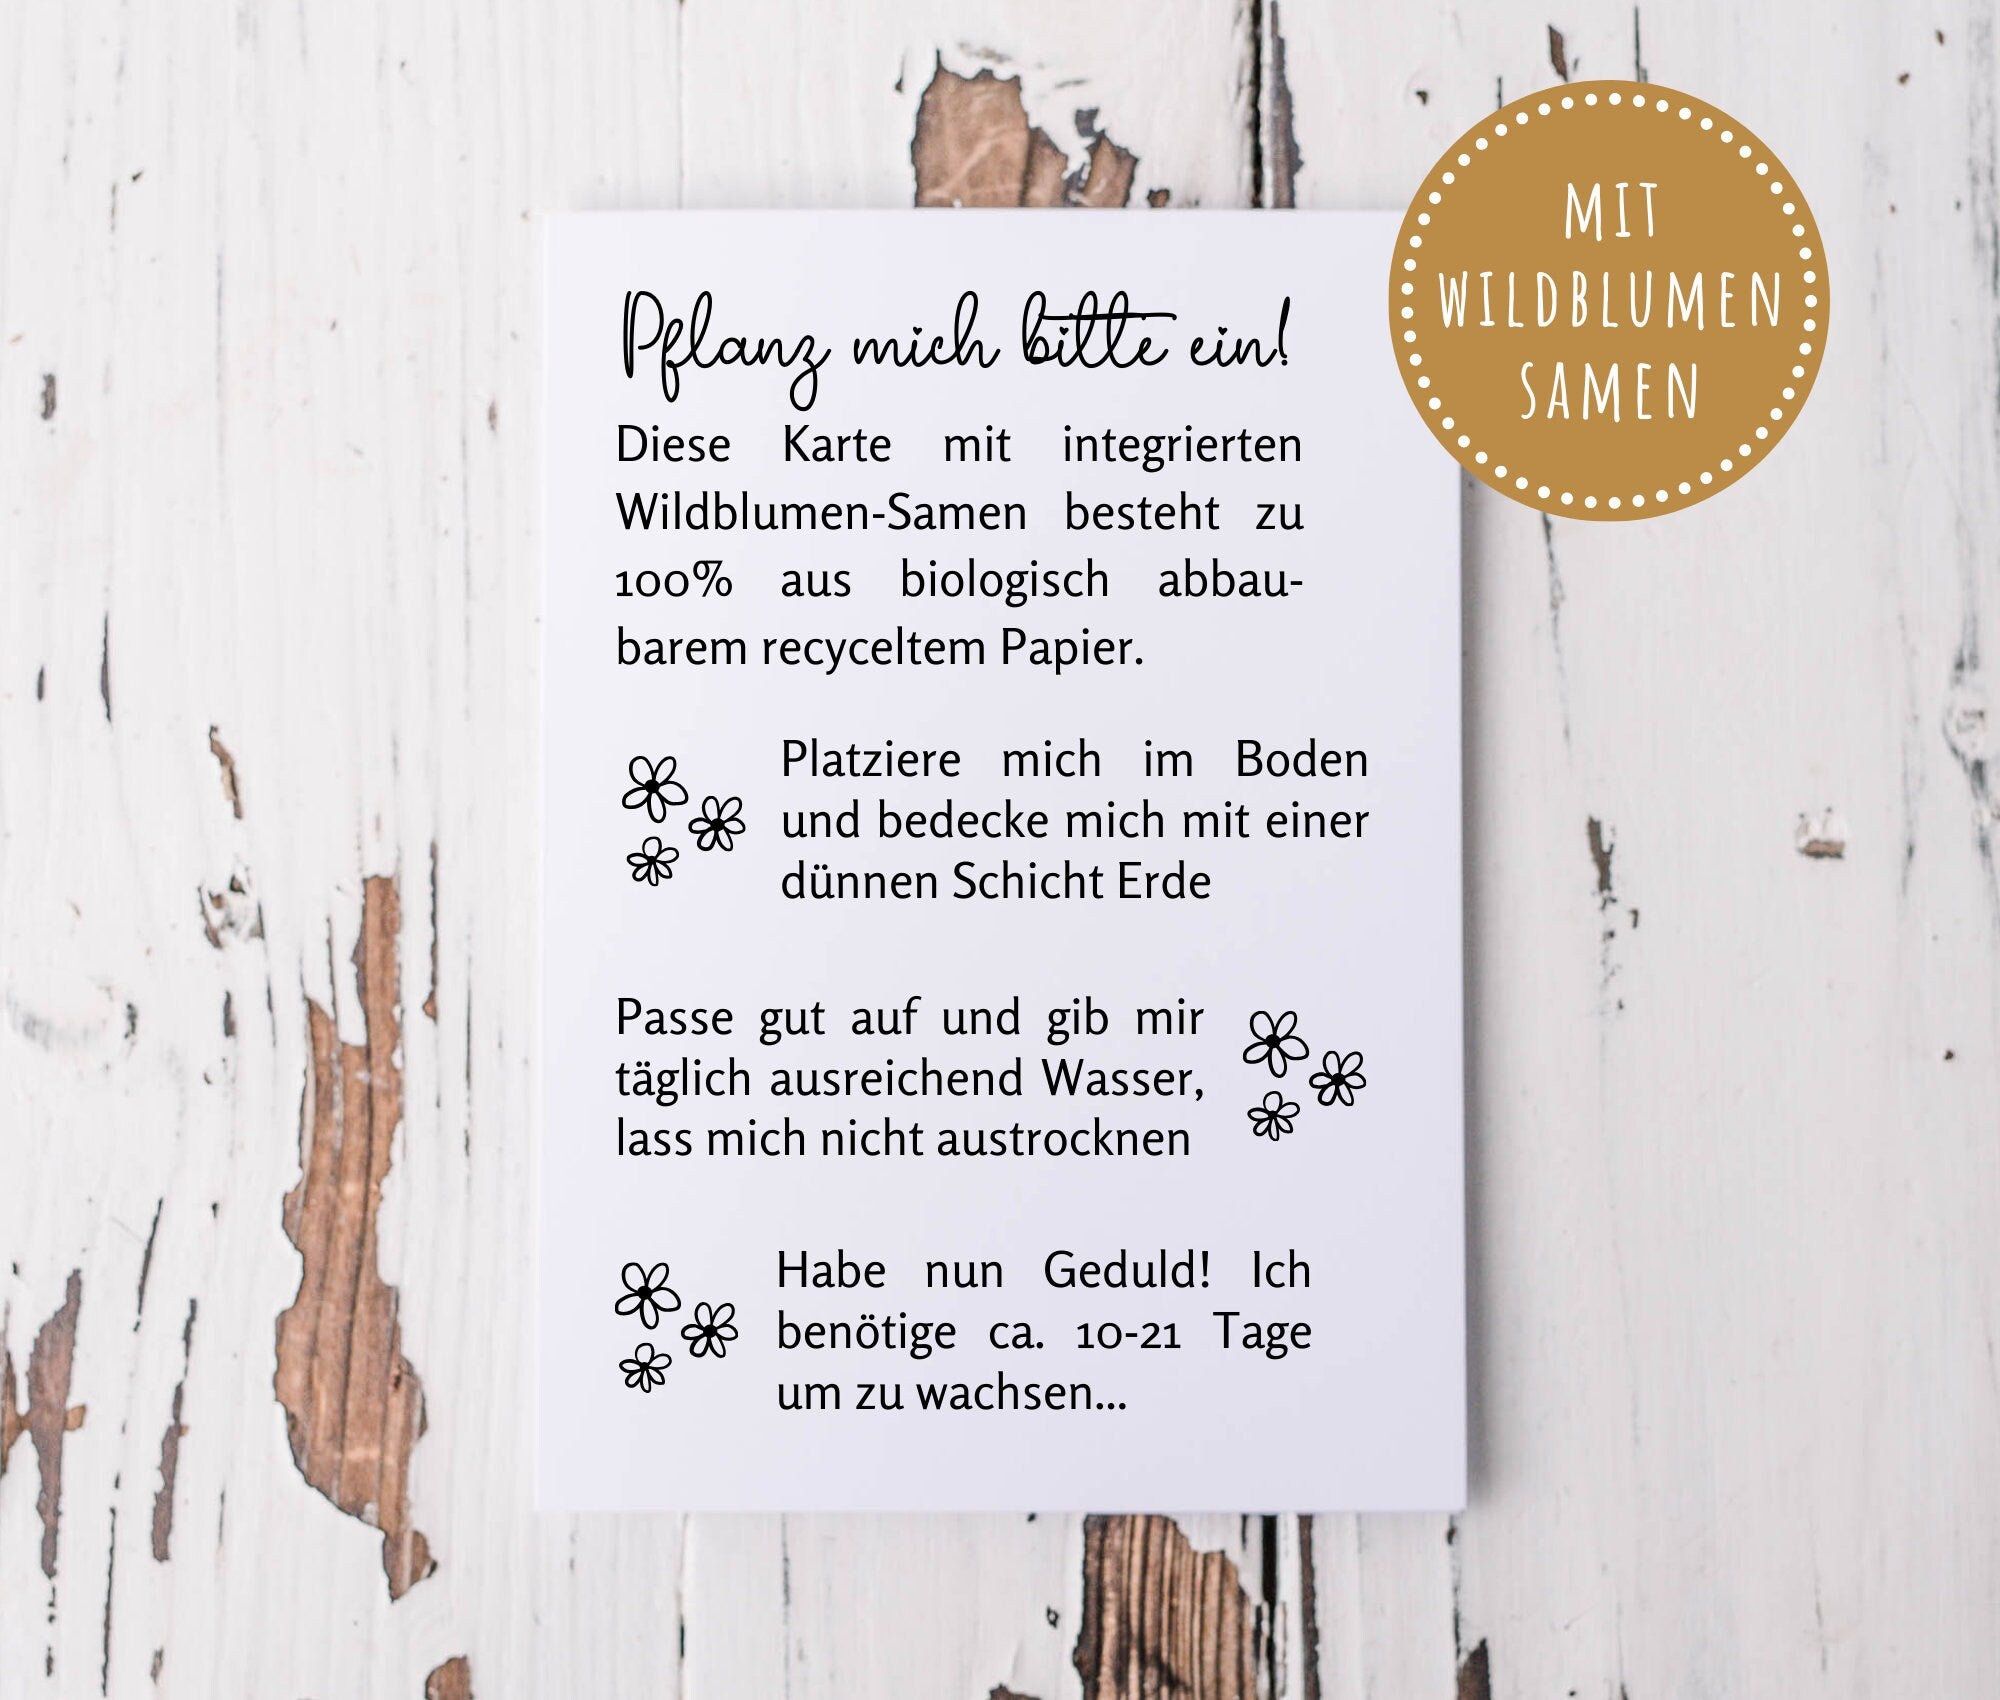 Pflanz mich bitte ein!
Diese Karte mit integrierten
Wildblumen-Samen besteht zu
100% aus biologisch abbau-
barem recyceltem Papier.
Platziere mich im Boden
und bedecke mich mit einer
dünnen Schicht Erde
Passe gut auf und gib mir
täglich ausreichend Wasser,
lass mich nicht austrocknen
Habe nun Geduld! Ich
benötige ca. 10-21 Tage
um zu wachsen...
MIT
WILDBLUMEN
SAMEN